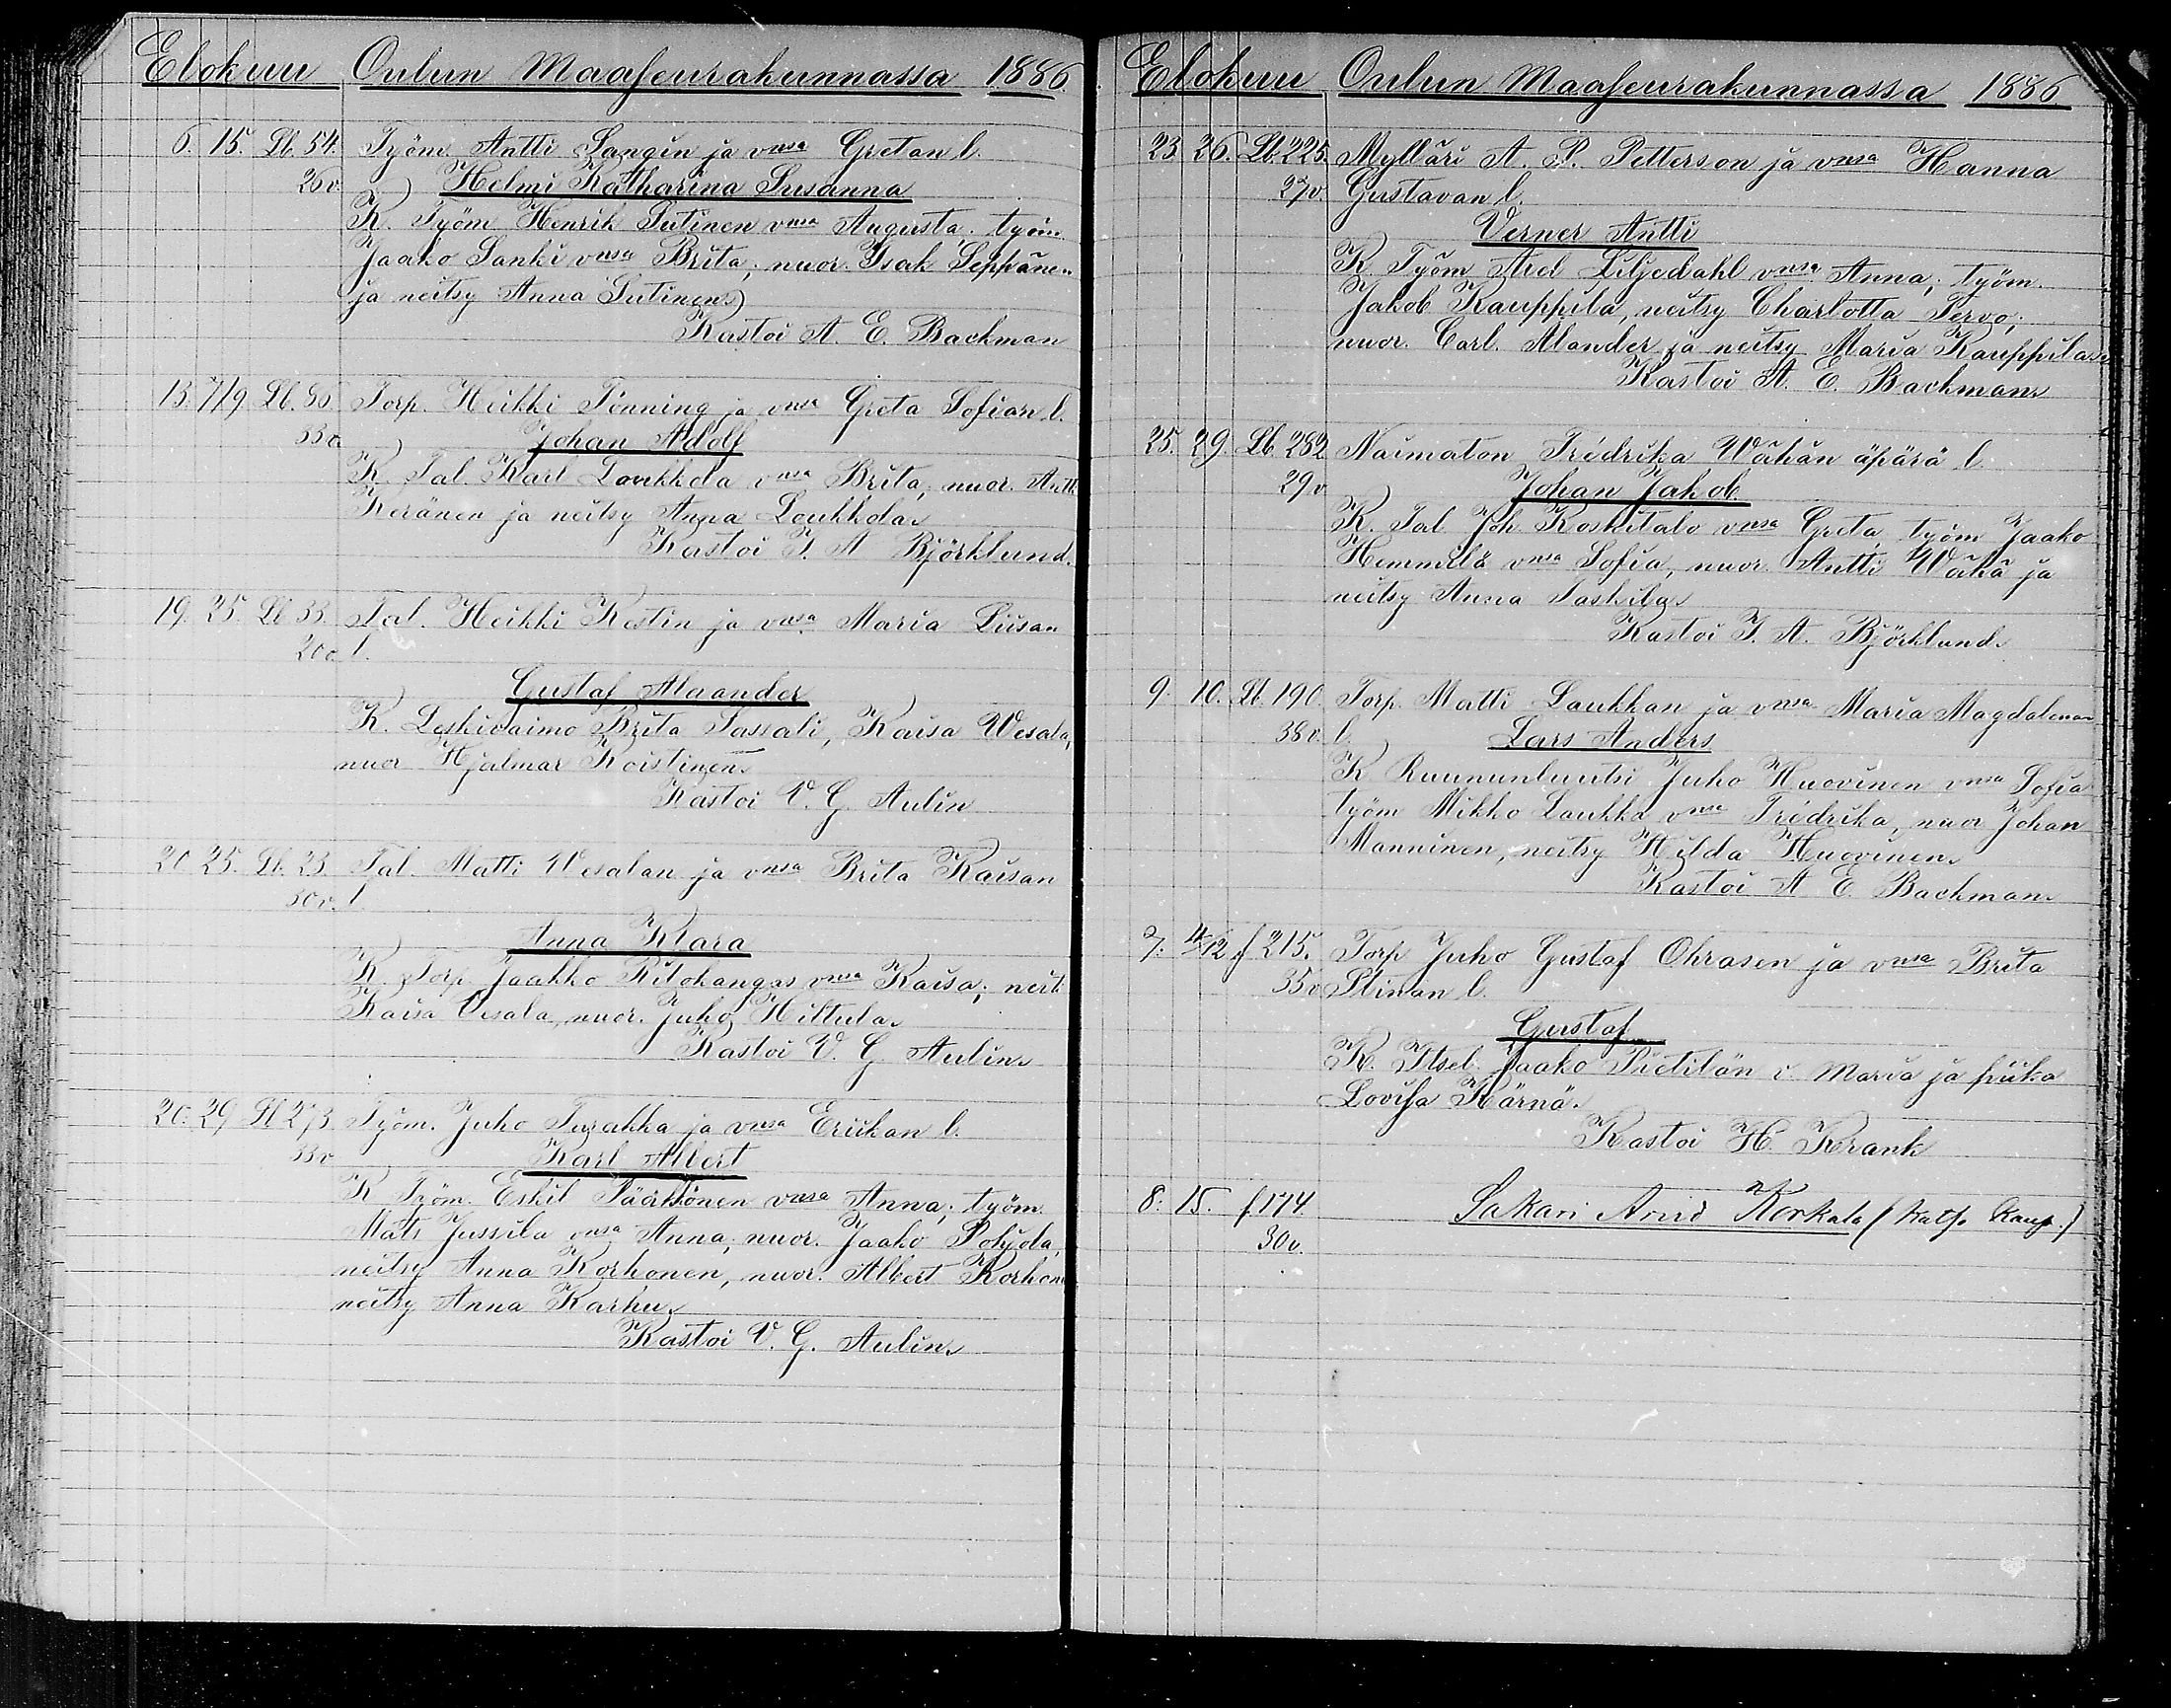 Elokuu Oulun Maaseurakunnassa 1886.
6. 15. Lb. 54. Työm. Antti Sangin ja vnsa Gretan l.
26v. Helmi Katharina Susanna
K. Työm Henrik Sutinen vnsa Augusta; työm.
Jaako Sanki vnsa Brita; nuor. Isak Seppänen
ja neitsy Anna Sutinen.
Kastoi A. E. Bachman
13. 7/9 Lb. 86 Torp. Heikki Tönning ja vnsa Greta Sofian l.
33v. Johan Adolf
K. Tal. Karl Loukkola vnsa Brita; nuor. Antti
Keränen ja neitsy Anna Loukkola.
Kastoi J. A Björklund.
19. 25. Lb 33. Tal. Heikki Kestin ja vnsa Maria Liisan
20v. l.
Gustaf Alaander
K. Leskivaimo Brita Sassali, Kaisa Wesala,
nuor Hjalmar Koistinen.
Kastoi V. G. Aulin
20 25. Lb. 23. Tal. Matti Wesalan ja vnsa Brita Kaisan
30v. l.
Anna Klara
K. Torp Jaakko Ritokangas vnsa Kaisa; neit.
Kaisa Vesala, nuor. Juho Hiltula.
Kastoi V. G. Aulin.
20. 29 Lb 273. Työm. Juho Turakka ja vnsa Eriikan l.
33v Karl Albert
K Työm. Eskil Pääkkönen vnsa Anna; työm.
Mats Jussila vnsa Anna; nuor. Jaako Pohjola,
neitsy Anna Korhonen, nuor. Albert Korhonen
neitsy Anna Karhu.
Kastoi V. G. Aulin.
Elokuu Oulun Maaseurakunnassa 1886
23 26. Lb. 225. Mylläri A. P. Petterson ja vnsa Hanna
27v. Gustavan l.
Verner Antti
K Työm Axel Liljedahl vnsa Anna; työm.
Jakob Kauppila, neitsy Charlotta Tervo;
nuor. Carl. Alander ja neitsy Maria Kauppila.
Kastoi A. E. Bachman.
25. 29. Lb. 282 Naimaton Fredrika Wähän äpärä l.
29v Johan Jakob
K. Tal Joh. Koskitalo vnsa Greta, työm Jaako
Hemmilä vnsa Sofia, nuor. Antti Wähä ja
neitsy Anna Taskila.
Kastoi J. A. Björklund.
9. 10. Lb. 190. Torp. Matti Laukkan ja vnsa Maria Magdalenan
38v. l. Lars Anders
K Ruununluutsi Juho Huovinen vnsa Sofia
työm Mikko Laukka vnsa Fredrika, nuor Johan
Manninen, neitsy Hilda Huovinen.
Kastoi A E. Bachman.
7. 4/12 f 215. Torp Juho Gustaf Ohrasen ja vnsa Brita
35v Stinan l.
Gustaf
K. Itsel. Jaako Pietilän v. Maria ja piika
Lovisa Kärnä.
Kastoi H. Krank
8. 15. f. 174. Sakari Arvid Korkala (kats. kaup.)
30v.